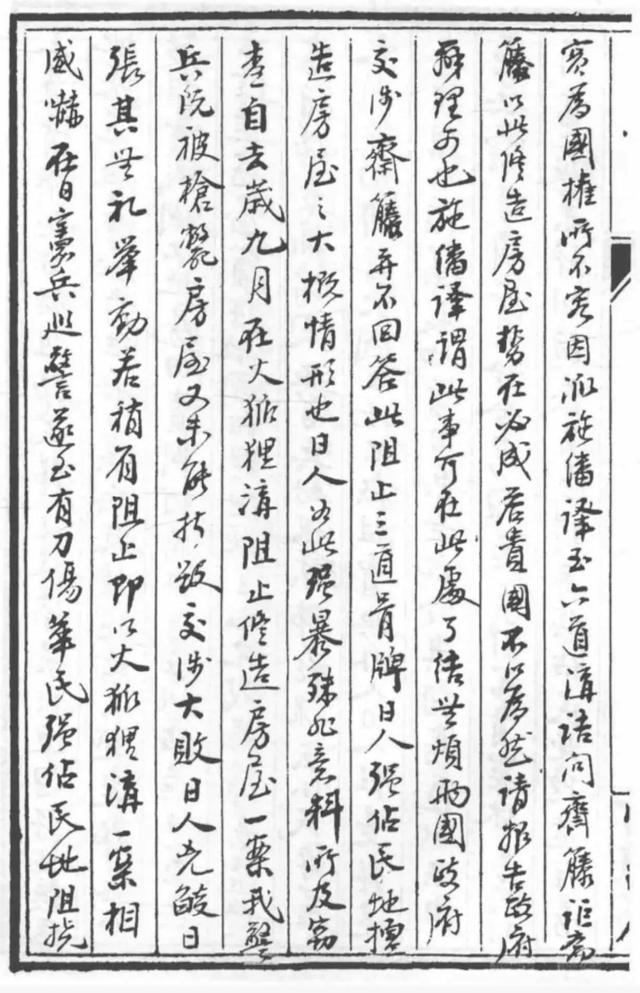 實為國權所不容因派施繙譯至六道溝詰問齋籐詎齋
籐以此修造房屋勢在必成若貴國不以為然請報告政府
辦理可也施繙譯謂此事可在此處了結無煩兩國政府
交涉齋籐再不回答此阻止三道骨牌日人强佔民地擅
造房屋之大概情形也日人如此强暴殊非意料所及竊
查自去歲九月在火狐狸溝阻止修造房屋一案我警
兵既被槍斃房屋又未能拆毀交涉大敗日人兇燄日
張其無礼舉動若稍有阻止即以火狐狸溝一案相
威嚇在日憲兵巡警遂至有刀傷華民强佔民地阻撓